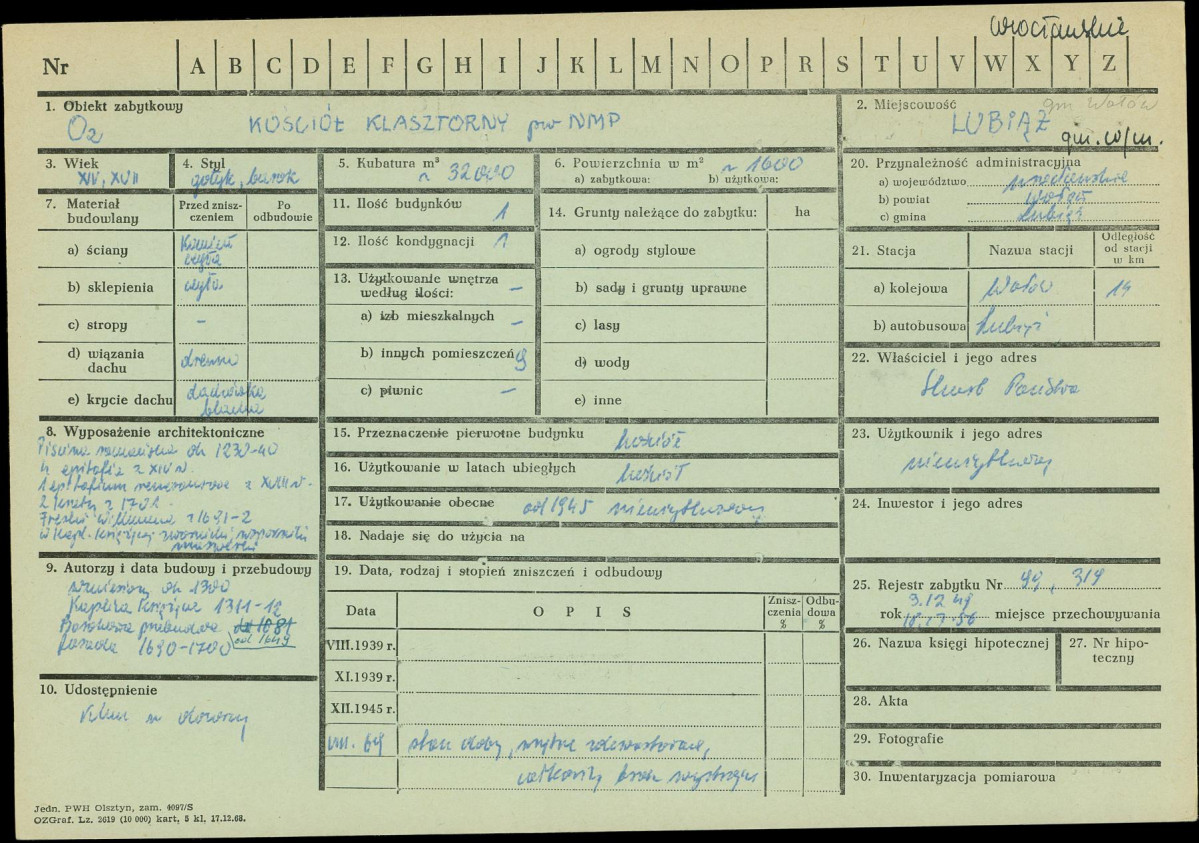 wrocławskie
Nr A B C D E F G H I J K L M N O P R S T U V W X Y Z
1. Obiekt zabytkowy
KOŚCIÓŁ KLASZTORNY pw NMP
2. Miejscowość
gm Wołów
LUBIĄŻ
gm. w/m.
3. Wiek
XIV, XVII
4. Styl
gotyk, barok
5. Kubatura m³
~ 32000
6. Powierzchnia w m²
~ 1600
a) zabytkowa: b) użytkowa:
7. Materiał budowlany
Przed zniszczeniem
Po odbudowie
a) ściany
kamień
cegła
b) sklepienia
cegła
c) stropy
–
d) wiązania dachu
drewno
e) krycie dachu
dachówka
blacha
8. Wyposażenie architektoniczne
Piscina romańska ok 1230-40
4 epitafia z XIV w.
1 epitafium renesansowe z
2 z 1701.
Freski Willmanna z 1691-2
w kap. książęcej zworniki, wsporniki
9. Autorzy i data budowy i przebudowy
wzniesiony ok 1300
Kaplica książęca 1311-12
Barokowa przebudowa do 1681
od 1649
fasada 1690-1700
10. Udostępnienie
Klucz u dozorcy
11. Ilość budynków
1
12. Ilość kondygnacji
1
13. Użytkowanie wnętrza według ilości:
–
a) izb mieszkalnych
–
b) innych pomieszczeń
9
c) piwnic
–
14. Grunty należące do zabytku:
ha
a) ogrody stylowe
b) sady i grunty uprawne
c) lasy
d) wody
e) inne
15. Przeznaczenie pierwotne budynku
kościół
16. Użytkowanie w latach ubiegłych
kościół
17. Użytkowanie obecne
od 1945 nieużytkowany
18. Nadaje się do użycia na
19. Data, rodzaj i stopień zniszczeń i odbudowy
Data
OPIS
Zniszczenia %
Odbudowa %
VIII.1939 r.
XI.1939 r.
XII.1945 r.
VIII. 69
stan dobry, wnętrze zdewastowane,
całkowity brak wystroju
20. Przynależność administracyjna
a) województwo wrocławskie
b) powiat Wołów
c) gmina Lubiąż
21. Stacja
Nazwa stacji
Odległość od stacji w km
a) kolejowa
Wołów
14
b) autobusowa
Lubiąż
22. Właściciel i jego adres
Skarb Państwa
23. Użytkownik i jego adres
nieużytkowany
24. Inwestor i jego adres
25. Rejestr zabytku Nr 99, 319
3.12 49
rok miejsce przechowywania
26. Nazwa księgi hipotecznej
27. Nr hipoteczny
28. Akta
29. Fotografie
30. Inwentaryzacja pomiarowa
Jedn. PWH Olsztyn, zam. 4097/S
OZGraf. Lz. 2619 (10 000) kart, 5 kl, 17.12.68.